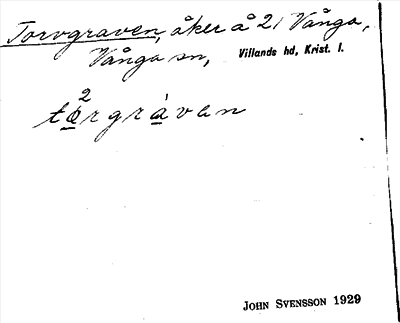 Torvgraven, åker å 21 Vånga,
Vånga sn, Villands hd, Krist. l.
2
tǫrgràvan
JOHN SVENSSON 1929